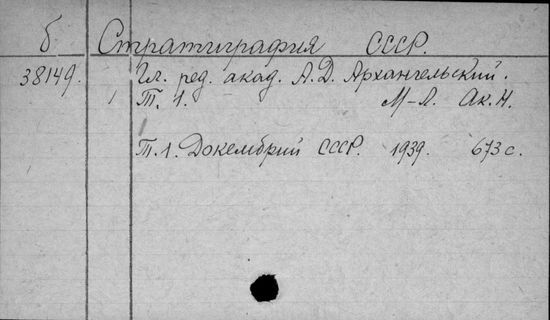 б Стратиграфия СССР.
38149. Гл. ред. акад. А. Д. Архангельский.
1 Т. 1. М-Л. Ак. Н.
Т. 1. Докембрий СССР. 1939. 673 с.